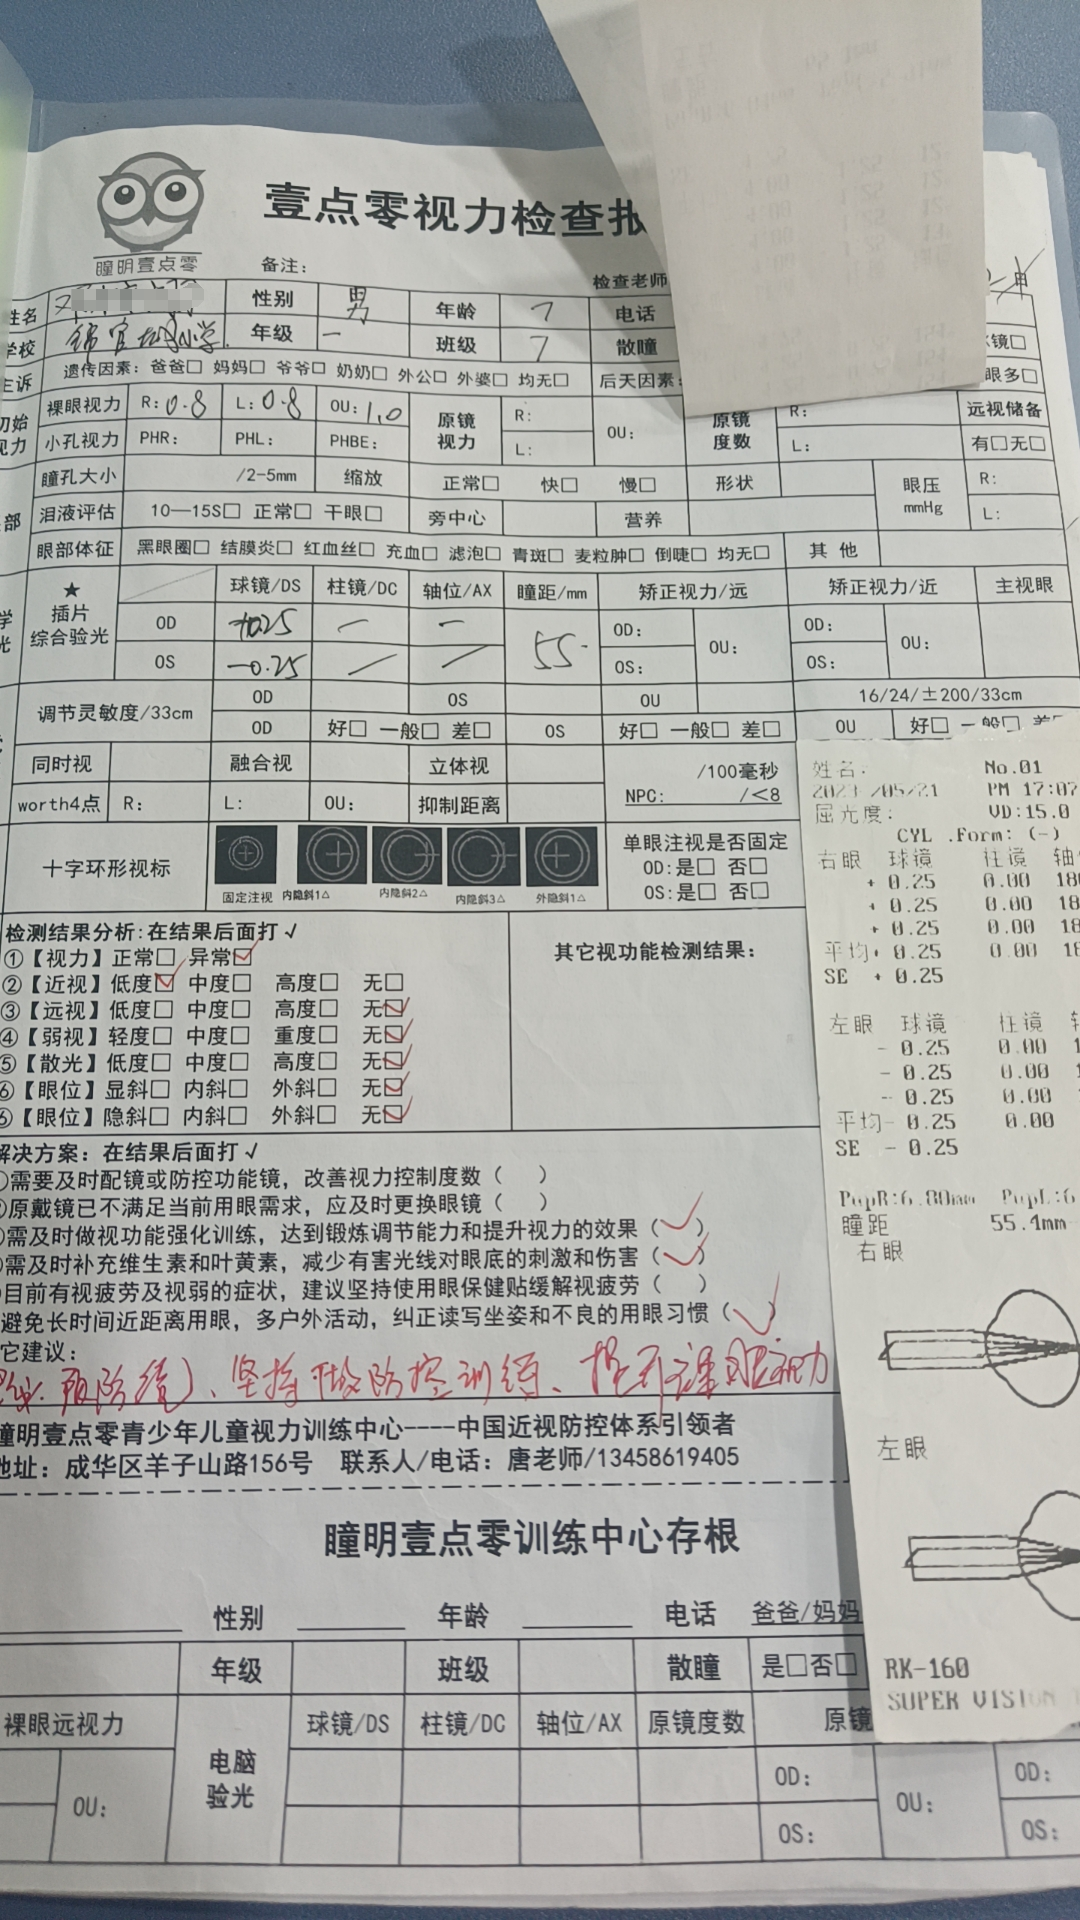 壹点零视力检查报
瞳明壹点零
备注:
检查老师
姓名 性别 男 年龄 7 电话
学校 锦官 小学. 年级 一 班级 7 散瞳 镜□
主诉 遗传因素: 爸爸□ 妈妈□ 爷爷□ 奶奶□ 外公□ 外婆□ 均无□ 后天因素: 眼多□
初始视力 裸眼视力 R: 0.8 L: 0.8 OU: 1.0 原镜视力 R: L: OU: 原镜度数 R: L: 远视储备 有□无□
小孔视力 PHR: PHL: PHBE:
瞳孔大小 /2-5mm 缩放 正常□ 快□ 慢□ 形状 眼压 mmHg R: L:
部 泪液评估 10—15S□ 正常□ 干眼□ 旁中心 营养
眼部体征 黑眼圈□ 结膜炎□ 红血丝□ 充血□ 滤泡□ 青斑□ 麦粒肿□ 倒睫□ 均无□ 其他
★ 插片 综合验光 球镜/DS 柱镜/DC 轴位/AX 瞳距/mm 矫正视力/远 矫正视力/近 主视眼
OD +0.25 — — 55. OD: OU: OD: OU:
OS -0.25 OS: OS:
调节灵敏度/33cm OD OS OU 16/24/±200/33cm
OD 好□ 一般□ 差□ OS 好□ 一般□ 差□ OU 好□ 一般□ 差□
同时视 融合视 立体视 /100毫秒
worth4点 R: L: OU: 抑制距离 NPC: /<8
十字环形视标 固定注视 内隐斜1△ 内隐斜2△ 内隐斜3△ 外隐斜1△
单眼注视是否固定
OD:是□ 否□
OS:是□ 否□
检测结果分析:在结果后面打√
①【视力】正常□ 异常☑
②【近视】低度☑ 中度□ 高度□ 无□
③【远视】低度□ 中度□ 高度□ 无☑
④【弱视】轻度□ 中度□ 重度□ 无☑
⑤【散光】低度□ 中度□ 高度□ 无☑
⑥【眼位】显斜□ 内斜□ 外斜□ 无☑
⑥【眼位】隐斜□ 内斜□ 外斜□ 无☑
其它视功能检测结果:
解决方案: 在结果后面打√
①需要及时配镜或防控功能镜, 改善视力控制度数( )
②原戴镜已不满足当前用眼需求, 应及时更换眼镜( )
需及时做视功能强化训练, 达到锻炼调节能力和提升视力的效果(√)
需及时补充维生素和叶黄素, 减少有害光线对眼底的刺激和伤害(√)
目前有视疲劳及视弱的症状, 建议坚持使用眼保健贴缓解视疲劳( )
避免长时间近距离用眼, 多户外活动, 纠正读写坐姿和不良的用眼习惯(√)
它建议:
预防镜)、坚持做防控训练、提升裸眼视力
瞳明壹点零青少年儿童视力训练中心----中国近视防控体系引领者
地址: 成华区羊子山路156号 联系人/电话: 唐老师/13458619405
瞳明壹点零训练中心存根
性别 年龄 电话 爸爸/妈妈
年级 班级 散瞳 是□否□
裸眼远视力 电脑验光 球镜/DS 柱镜/DC 轴位/AX 原镜度数 原镜
OU: OD: OU: OD:
OS: OS:
姓名: No.01
2023 /05/21 PM 17:07
屈光度: VD:15.0
CYL .Form: (-)
右眼 球镜 柱镜 轴
+ 0.25 0.00 180
+ 0.25 0.00 18
+ 0.25 0.00 18
平均+ 0.25 0.00 18
SE + 0.25
左眼 球镜 柱镜
- 0.25 0.00 1
- 0.25 0.00 1
- 0.25 0.00
平均- 0.25 0.00
SE - 0.25
PupR:6.80mm PupL:6
瞳距 55.4mm
右眼
左眼
RK-160
SUPER VISION